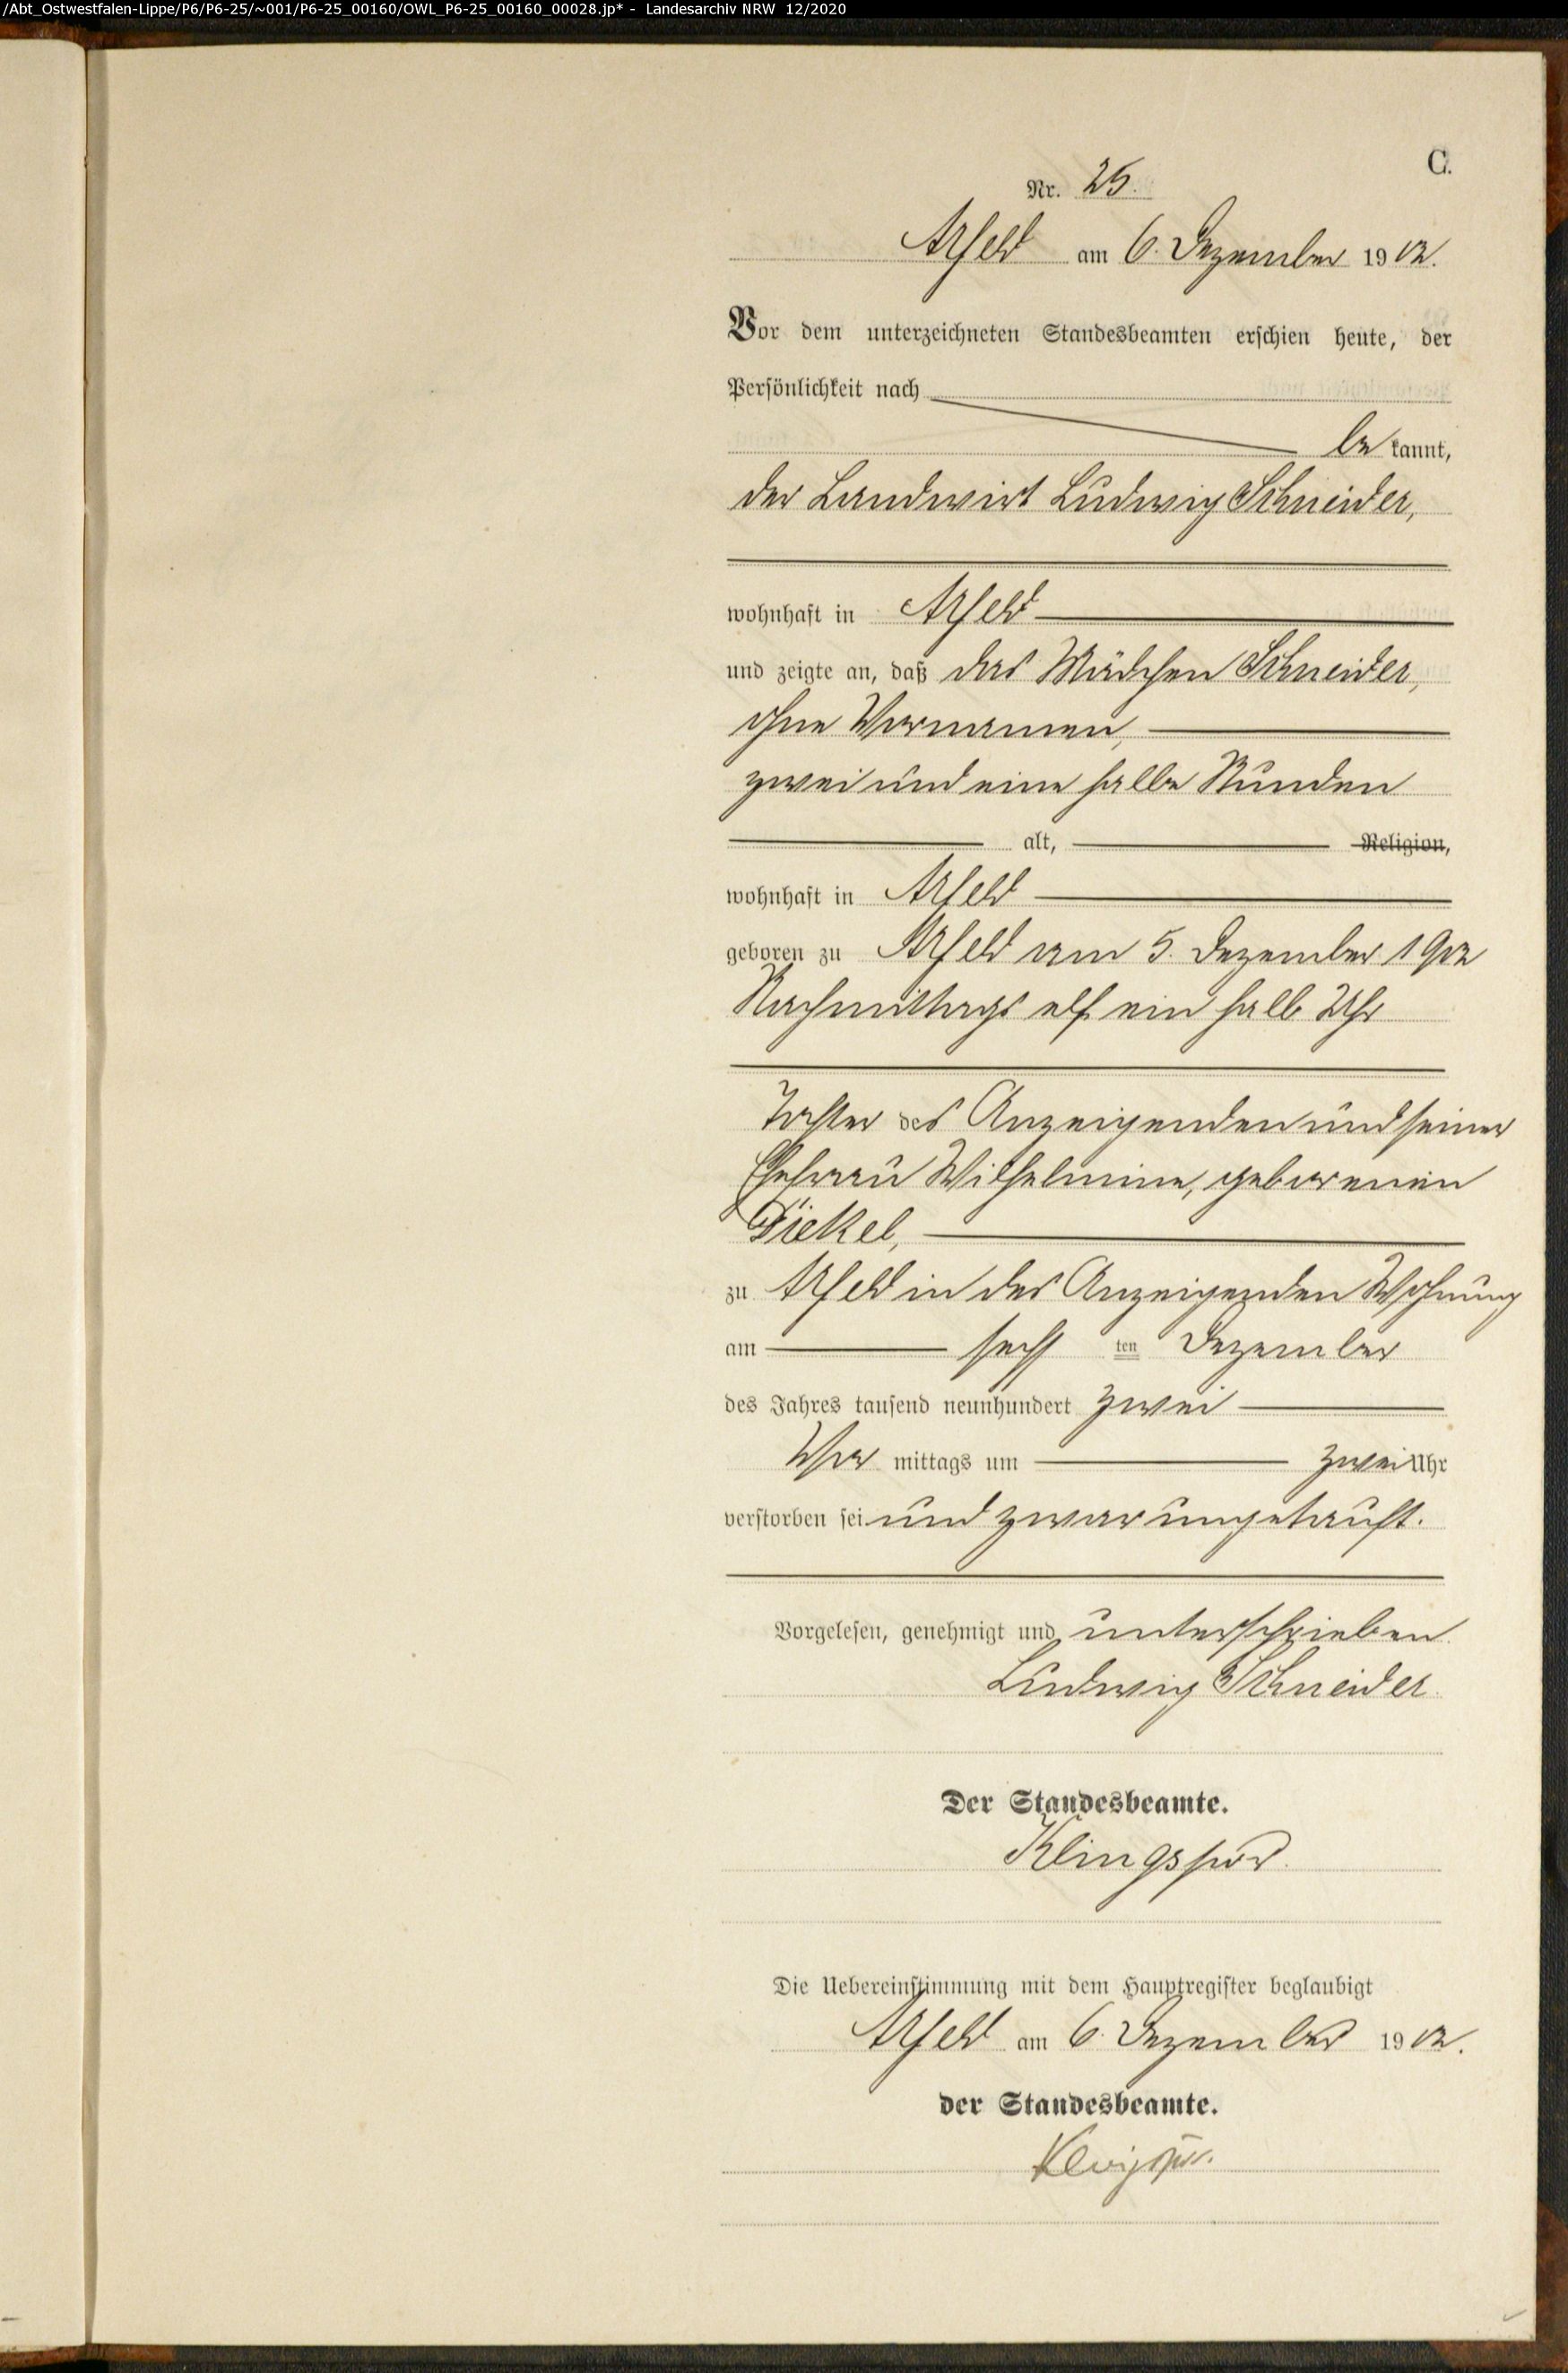 /Abt_Ostwestfalen-Lippe/P6/P6-25/~001/P6-25_00160/OWL_P6-25_00160_00028.jp* - Landesarchiv NRW 12/2020
C.
Nr. 25.
Arfeld am 6. Dezember 1902.
Vor dem unterzeichneten Standesbeamten erschien heute, der
Persönlichkeit nach
be kannt,
der Landwirt Ludwig Schneider,
wohnhaft in Arfeld
und zeigte an, daß das Mädchen Schneider,
ohne Vornamen,
zwei und eine halbe Stunden
alt, Religion,
wohnhaft in Arfeld
geboren zu Arfeld am 5. Dezember 1902
Nachmittags elf ein halb Uhr
Tochter des Anzeigenden und seiner
Ehefrau Wilhelmine, geborenen
Dickel,
zu Arfeld in des Anzeigenden Wohnung
am sechs ten Dezember
des Jahres tausend neunhundert zwei
Vor mittags um zwei Uhr
verstorben sei und zwar ungetauft.
Vorgelesen, genehmigt und unterschrieben
Ludwig Schneider
Der Standesbeamte.
Klingspor.
Die Uebereinstimmung mit dem Hauptregister beglaubigt
Arfeld am 6. Dezember 1902.
der Standesbeamte.
Klingspor.